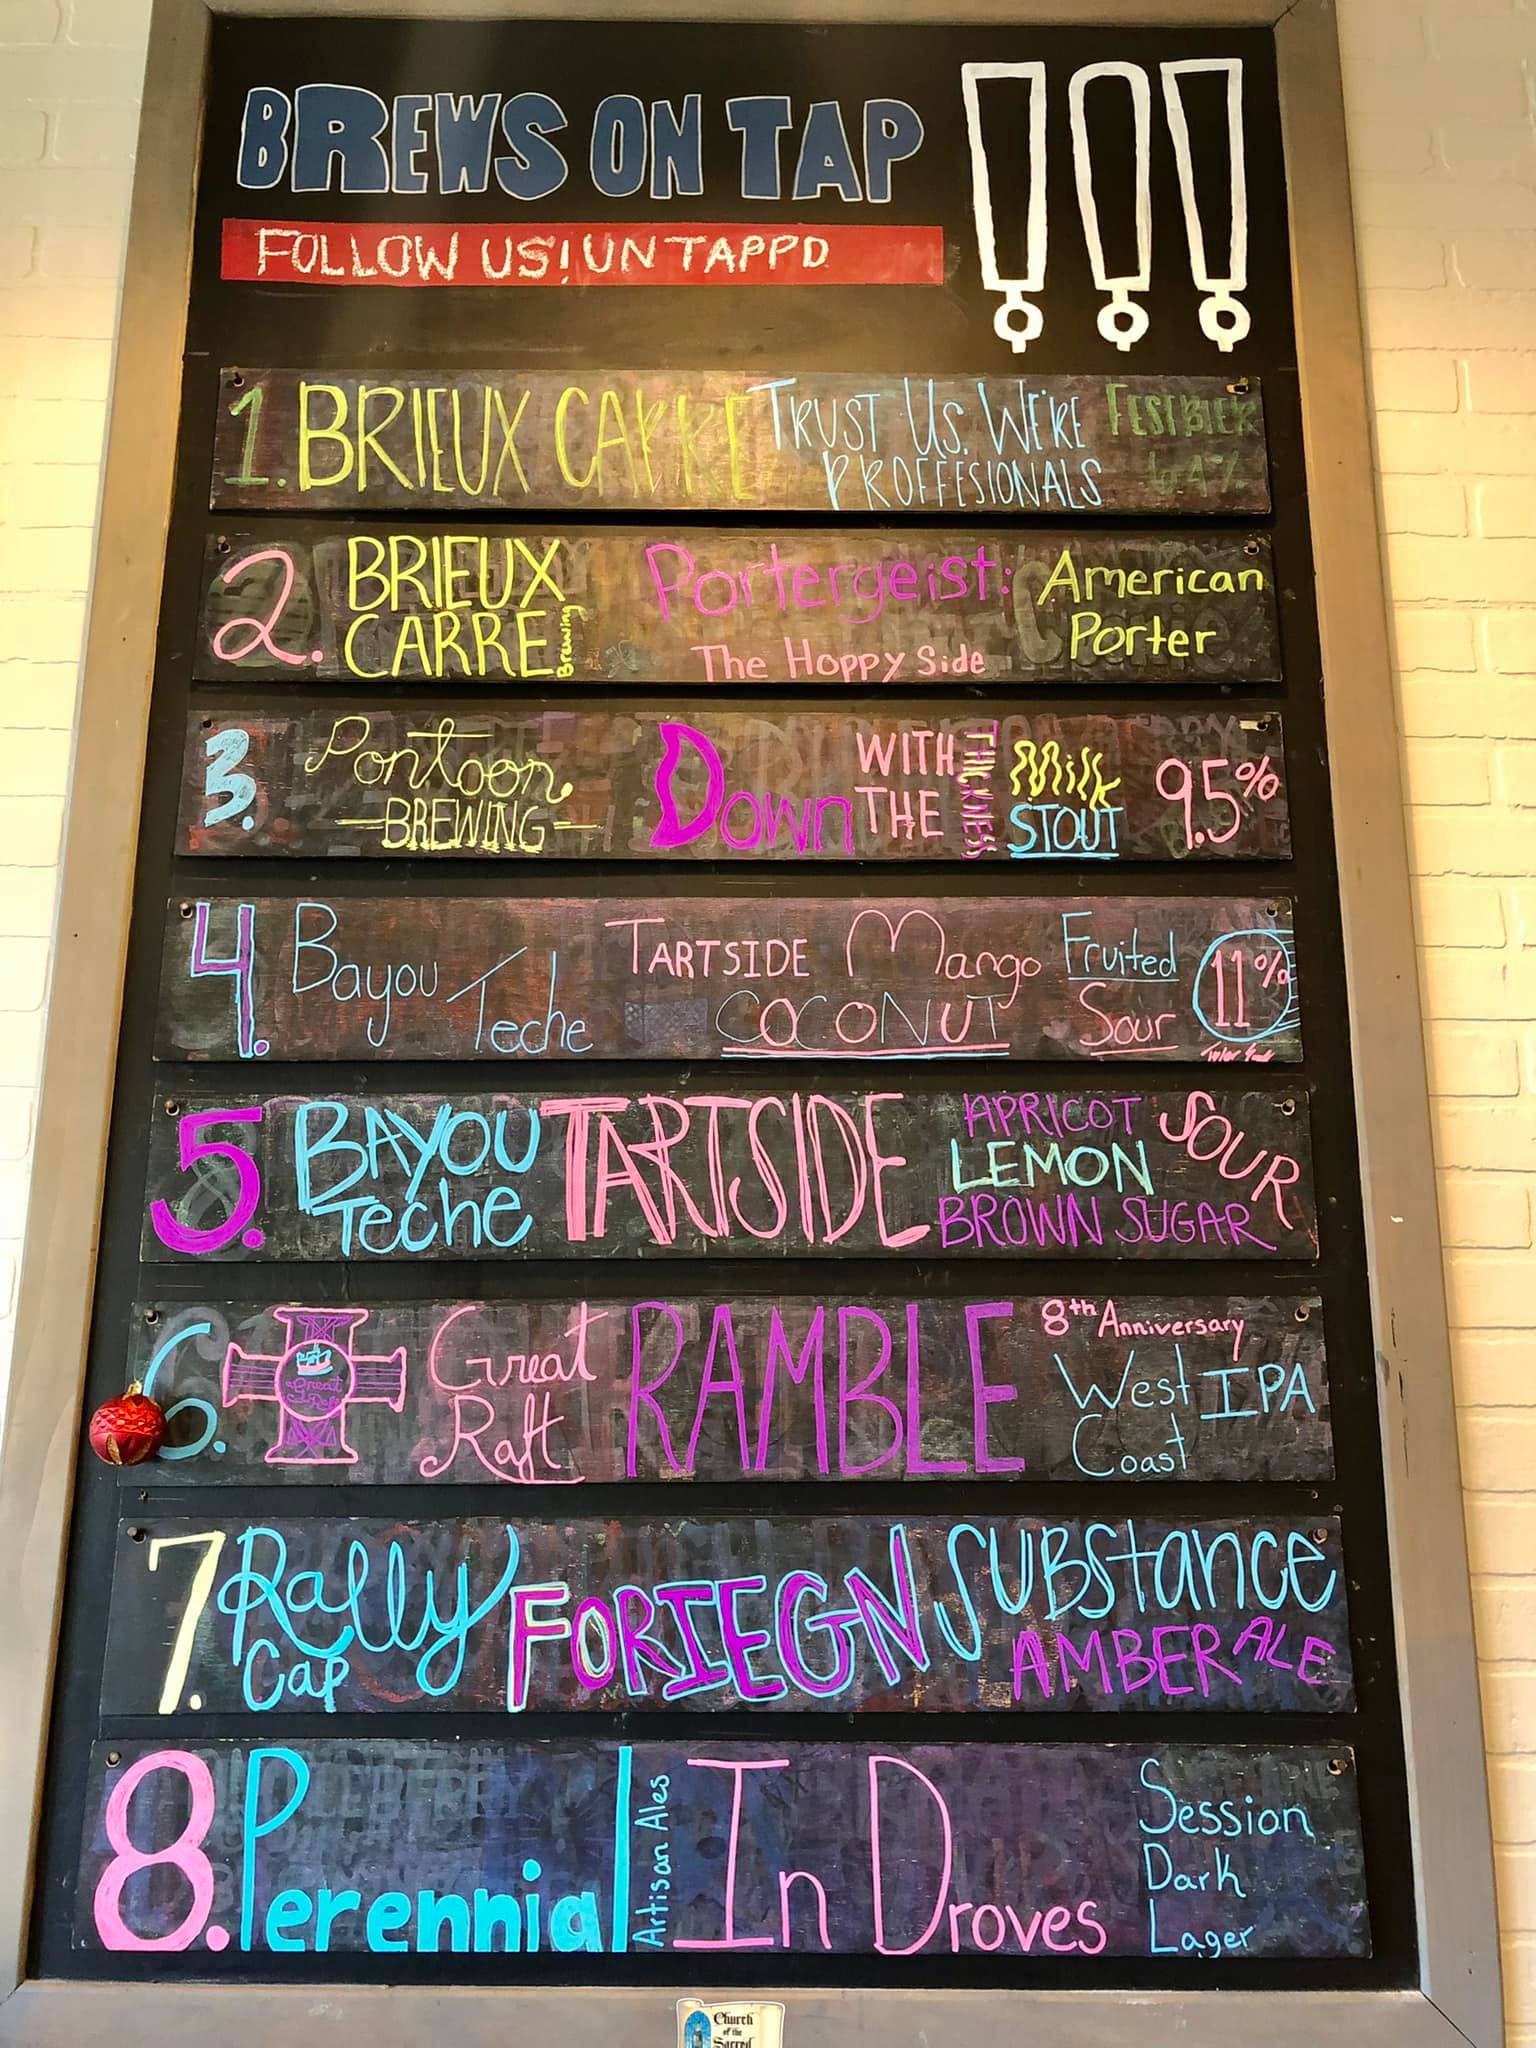 BREWS ON TAP !!!
FOLLOW US! UNTAPPD
1. BRIEUX CARRE TRUST US. WE'RE PROFFESIONALS FESTBIER 6.4%
2. BRIEUX CARRE Brewing Portergeist: The Hoppy Side American Porter
3. Pontoon BREWING Down WITH THE THICKNESS Milk STOUT 9.5%
4. Bayou Teche TARTSIDE Mango COCONUT Fruited Sour 11%
5. BAYOU Teche TARTSIDE APRICOT LEMON BROWN SUGAR SOUR
6. Great Raft Great Raft RAMBLE 8th Anniversary West Coast IPA
7. Rally Cap FORIEGN SUBStance AMBER ALE
8. Perennial Artisan Ales In Droves Session Dark Lager
Church
of the
Sacred